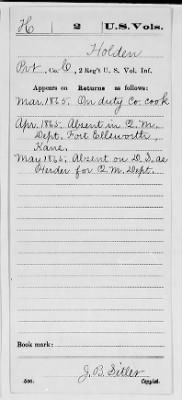 H | 2 | U.S. Vols.
Holden
Pvt, Co. C, 2 Reg't U. S. Vol. Inf.
Appears on
Returns as follows:
Mar. 1865, On duty Co cook
Apr. 1865. Absent in Q. M.
Dept. Fort Ellsworth,
Kans.
May 1865, Absent on D. S. as
Herder for Q. M. Dept.
Book mark:
J. B. Sitler
Copyist.